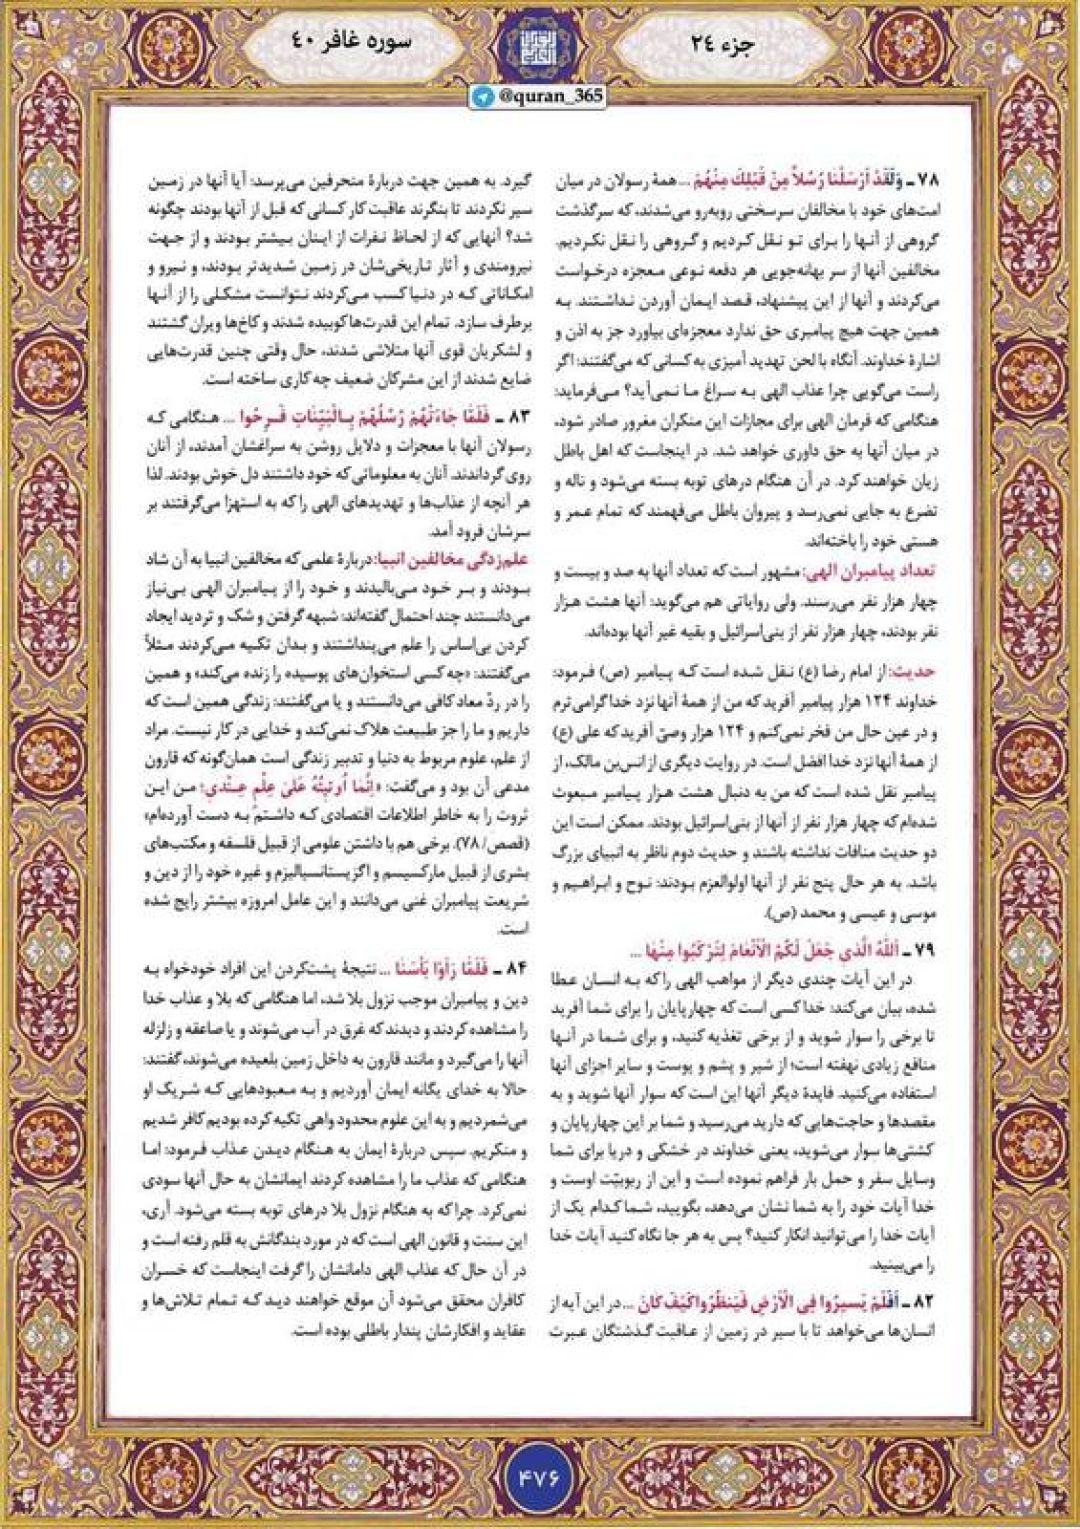 جزء ۲٤
سوره غافر ٤٠
@quran_365
۷۸ ـ وَلَقَدْ أَرْسَلْنَا رُسُلاً مِنْ قَبْلِكَ مِنْهُمْ ... همهٔ رسولان در میان
امت‌های خود با مخالفان سرسختی روبه‌رو می‌شدند، که سرگذشت
گروهی از آنها را برای تو نقل کردیم و گروهی را نقل نکردیم.
مخالفین آنها از سر بهانه‌جویی هر دفعه نوعی معجزه درخواست
می‌کردند و آنها از این پیشنهاد، قصد ایمان آوردن نداشتند. به
همین جهت هیچ پیامبری حق ندارد معجزه‌ای بیاورد جز به اذن و
اشارهٔ خداوند. آنگاه با لحن تهدید آمیزی به کسانی که می‌گفتند: اگر
راست می‌گویی چرا عذاب الهی به سراغ ما نمی‌آید؟ می‌فرماید:
هنگامی که فرمان الهی برای مجازات این منکران مغرور صادر شود،
در میان آنها به حق داوری خواهد شد. در اینجاست که اهل باطل
زیان خواهند کرد. در آن هنگام درهای توبه بسته می‌شود و ناله و
تضرع به جایی نمی‌رسد و پیروان باطل می‌فهمند که تمام عمر و
هستی خود را باخته‌اند.
تعداد پیامبران الهی: مشهور است که تعداد آنها به صد و بیست و
چهار هزار نفر می‌رسند. ولی روایاتی هم می‌گوید: آنها هشت هزار
نفر بودند، چهار هزار نفر از بنی‌اسرائیل و بقیه غیر آنها بوده‌اند.
حدیث: از امام رضا (ع) نقل شده است که پیامبر (ص) فرمود:
خداوند ۱۲۴ هزار پیامبر آفرید که من از همهٔ آنها نزد خدا گرامی‌ترم
و در عین حال من فخر نمی‌کنم و ۱۲۴ هزار وصیّ آفرید که علی (ع)
از همهٔ آنها نزد خدا افضل است. در روایت دیگری از انس‌بن مالک، از
پیامبر نقل شده است که من به دنبال هشت هزار پیامبر مبعوث
شده‌ام که چهار هزار نفر از آنها از بنی‌اسرائیل بودند. ممکن است این
دو حدیث منافات نداشته باشند و حدیث دوم ناظر به انبیای بزرگ
باشد. به هر حال پنج نفر از آنها اولوالعزم بودند: نوح و ابراهیم و
موسی و عیسی و محمد (ص).
۷۹ ـ اَللّٰهُ الَّذِی جَعَلَ لَکُمُ الْاَنْعَامَ لِتَرْکَبُوا مِنْهَا ...
در این آیات چندی دیگر از مواهب الهی را که به انسان عطا
شده، بیان می‌کند: خدا کسی است که چهارپایان را برای شما آفرید
تا برخی را سوار شوید و از برخی تغذیه کنید، و برای شما در آنها
منافع زیادی نهفته است؛ از شیر و پشم و پوست و سایر اجزای آنها
استفاده می‌کنید. فایدهٔ دیگر آنها این است که سوار آنها شوید و به
مقصدها و حاجت‌هایی که دارید می‌رسید و شما بر این چهارپایان و
کشتی‌ها سوار می‌شوید، یعنی خداوند در خشکی و دریا برای شما
وسایل سفر و حمل بار فراهم نموده است و این از ربوبیّت اوست و
خدا آیات خود را به شما نشان می‌دهد، بگویید، شما کدام یک از
آیات خدا را می‌توانید انکار کنید؟ پس به هر جا نگاه کنید آیات خدا
را می‌بینید.
۸۲ ـ اَفَلَمْ یَسیرُوا فِی الْاَرْضِ فَیَنظُرُوا کَیْفَ کَانَ ... در این آیه از
انسان‌ها می‌خواهد تا با سیر در زمین از عاقبت گذشتگان عبرت
گیرد. به همین جهت دربارهٔ منحرفین می‌پرسد: آیا آنها در زمین
سیر نکردند تا بنگرند عاقبت کار کسانی که قبل از آنها بودند چگونه
شد؟ آنهایی که از لحاظ نفرات از اینان بیشتر بودند و از جهت
نیرومندی و آثار تاریخی‌شان در زمین شدیدتر بودند، و نیرو و
امکاناتی که در دنیا کسب می‌کردند نتوانست مشکلی را از آنها
برطرف سازد. تمام این قدرت‌ها کوبیده شدند و کاخ‌ها ویران گشتند
و لشکریان قوی آنها متلاشی شدند، حال وقتی چنین قدرت‌هایی
ضایع شدند از این مشرکان ضعیف چه کاری ساخته است.
۸۳ ـ فَلَمَّا جَاءَتْهُمْ رُسُلُهُمْ بِالْبَیِّنَاتِ فَرِحُوا ... هنگامی که
رسولان آنها با معجزات و دلایل روشن به سراغشان آمدند، از آنان
روی گرداندند. آنان به معلوماتی که خود داشتند دل خوش بودند. لذا
هر آنچه از عذاب‌ها و تهدیدهای الهی را که به استهزا می‌گرفتند بر
سرشان فرود آمد.
علم‌زدگی مخالفین انبیا: دربارهٔ علمی که مخالفین انبیا به آن شاد
بودند و بر خود می‌بالیدند و خود را از پیامبران الهی بی‌نیاز
می‌دانستند چند احتمال گفته‌اند: شبهه گرفتن و شک و تردید ایجاد
کردن بی‌اساس را علم می‌پنداشتند و بدان تکیه می‌کردند مثلاً
می‌گفتند: «چه کسی استخوان‌های پوسیده را زنده می‌کند» و همین
را در ردّ معاد کافی می‌دانستند و یا می‌گفتند: زندگی همین است که
داریم و ما را جز طبیعت هلاک نمی‌کند و خدایی در کار نیست. مراد
از علم، علوم مربوط به دنیا و تدبیر زندگی است همان‌گونه که قارون
مدعی آن بود و می‌گفت: «اِنَّمَا اُوتِیتُهُ عَلَیٰ عِلْمٍ عِنْدِی؛ من این
ثروت را به خاطر اطلاعات اقتصادی که داشتم به دست آورده‌ام»
(قصص/ ۷۸). برخی هم با داشتن علومی از قبیل فلسفه و مکتب‌های
بشری از قبیل مارکسیسم و اگزیستانسیالیزم و غیره خود را از دین و
شریعت پیامبران غنی می‌دانند و این عامل امروزه بیشتر رایج شده
است.
۸۴ ـ فَلَمَّا رَأَوْا بَأْسَنَا ... نتیجهٔ پشت‌کردن این افراد خودخواه به
دین و پیامبران موجب نزول بلا شد، اما هنگامی که بلا و عذاب خدا
را مشاهده کردند و دیدند که غرق در آب می‌شوند و یا صاعقه و زلزله
آنها را می‌گیرد و مانند قارون به داخل زمین بلعیده می‌شوند، گفتند:
حالا به خدای یگانه ایمان آوردیم و به معبودهایی که شریک او
می‌شمردیم و به این علوم محدود واهی تکیه کرده بودیم کافر شدیم
و منکریم. سپس دربارهٔ ایمان به هنگام دیدن عذاب فرمود: اما
هنگامی که عذاب ما را مشاهده کردند ایمانشان به حال آنها سودی
نمی‌کرد. چرا که به هنگام نزول بلا درهای توبه بسته می‌شود. آری،
این سنت و قانون الهی است که در مورد بندگانش به قلم رفته است و
در آن حال که عذاب الهی دامانشان را گرفت اینجاست که خسران
کافران محقق می‌شود آن موقع خواهند دید که تمام تلاش‌ها و
عقاید و افکارشان پندار باطلی بوده است.
۴۷۶